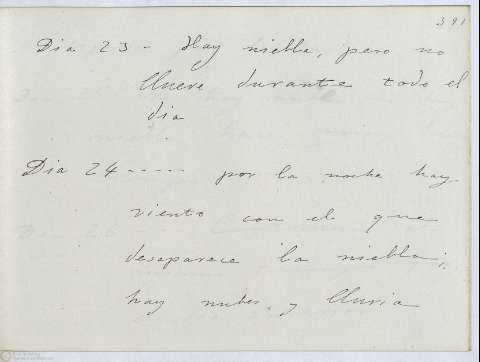 391
Dia 23 - Hay niebla, pero no
llueve durante todo el
dia
Dia 24 ----- por la noche hay
viento con el que
desaparece la niebla;
hay nubes y lluvia